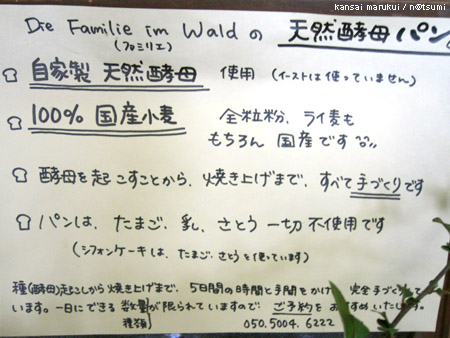 kansai marukui / n@tsumi
Die Familie im Wald の 天然酵母パン。
(ファミリエ)
自家製 天然酵母 使用 (イーストは使っていません)
100% 国産小麦 全粒粉、ライ麦も
もちろん 国産です
酵母を起こすことから、焼き上げまで、すべて手づくりです
パンは、たまご、乳、さとう 一切 不使用です
(シフォンケーキは、たまご、さとうを使っています)
種(酵母)起こしから焼き上げまで、5日間の時間と手間をかけ、完全手づくりして
います。一日にできる 数量 が限られていますので、ご予約を おすすめいたします。
種類 050.5004.6222